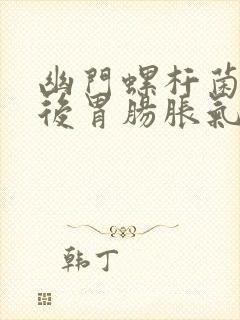 幽門螺杆菌
後胃腸脹氣
韩丁